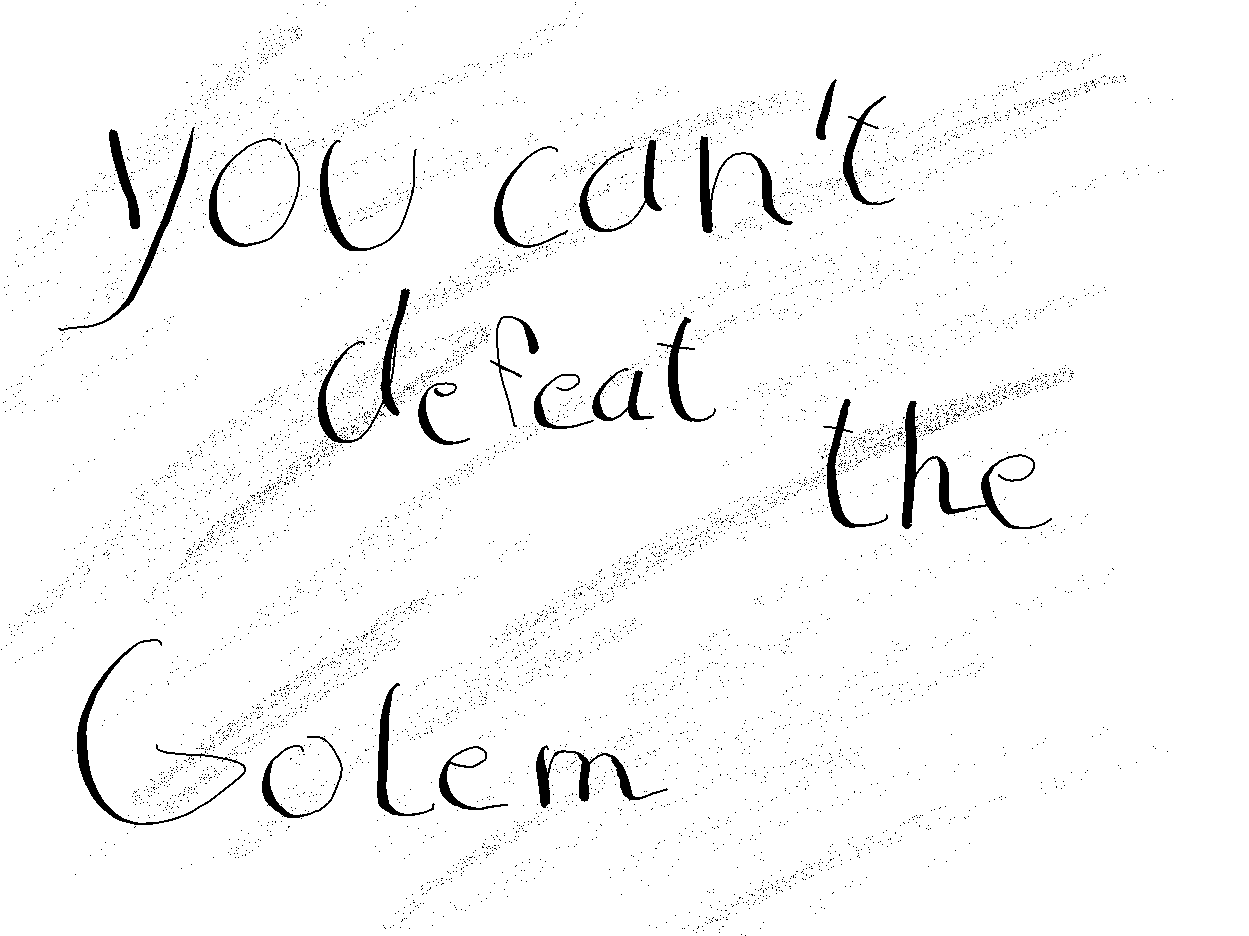 you can't
defeat
the
Golem